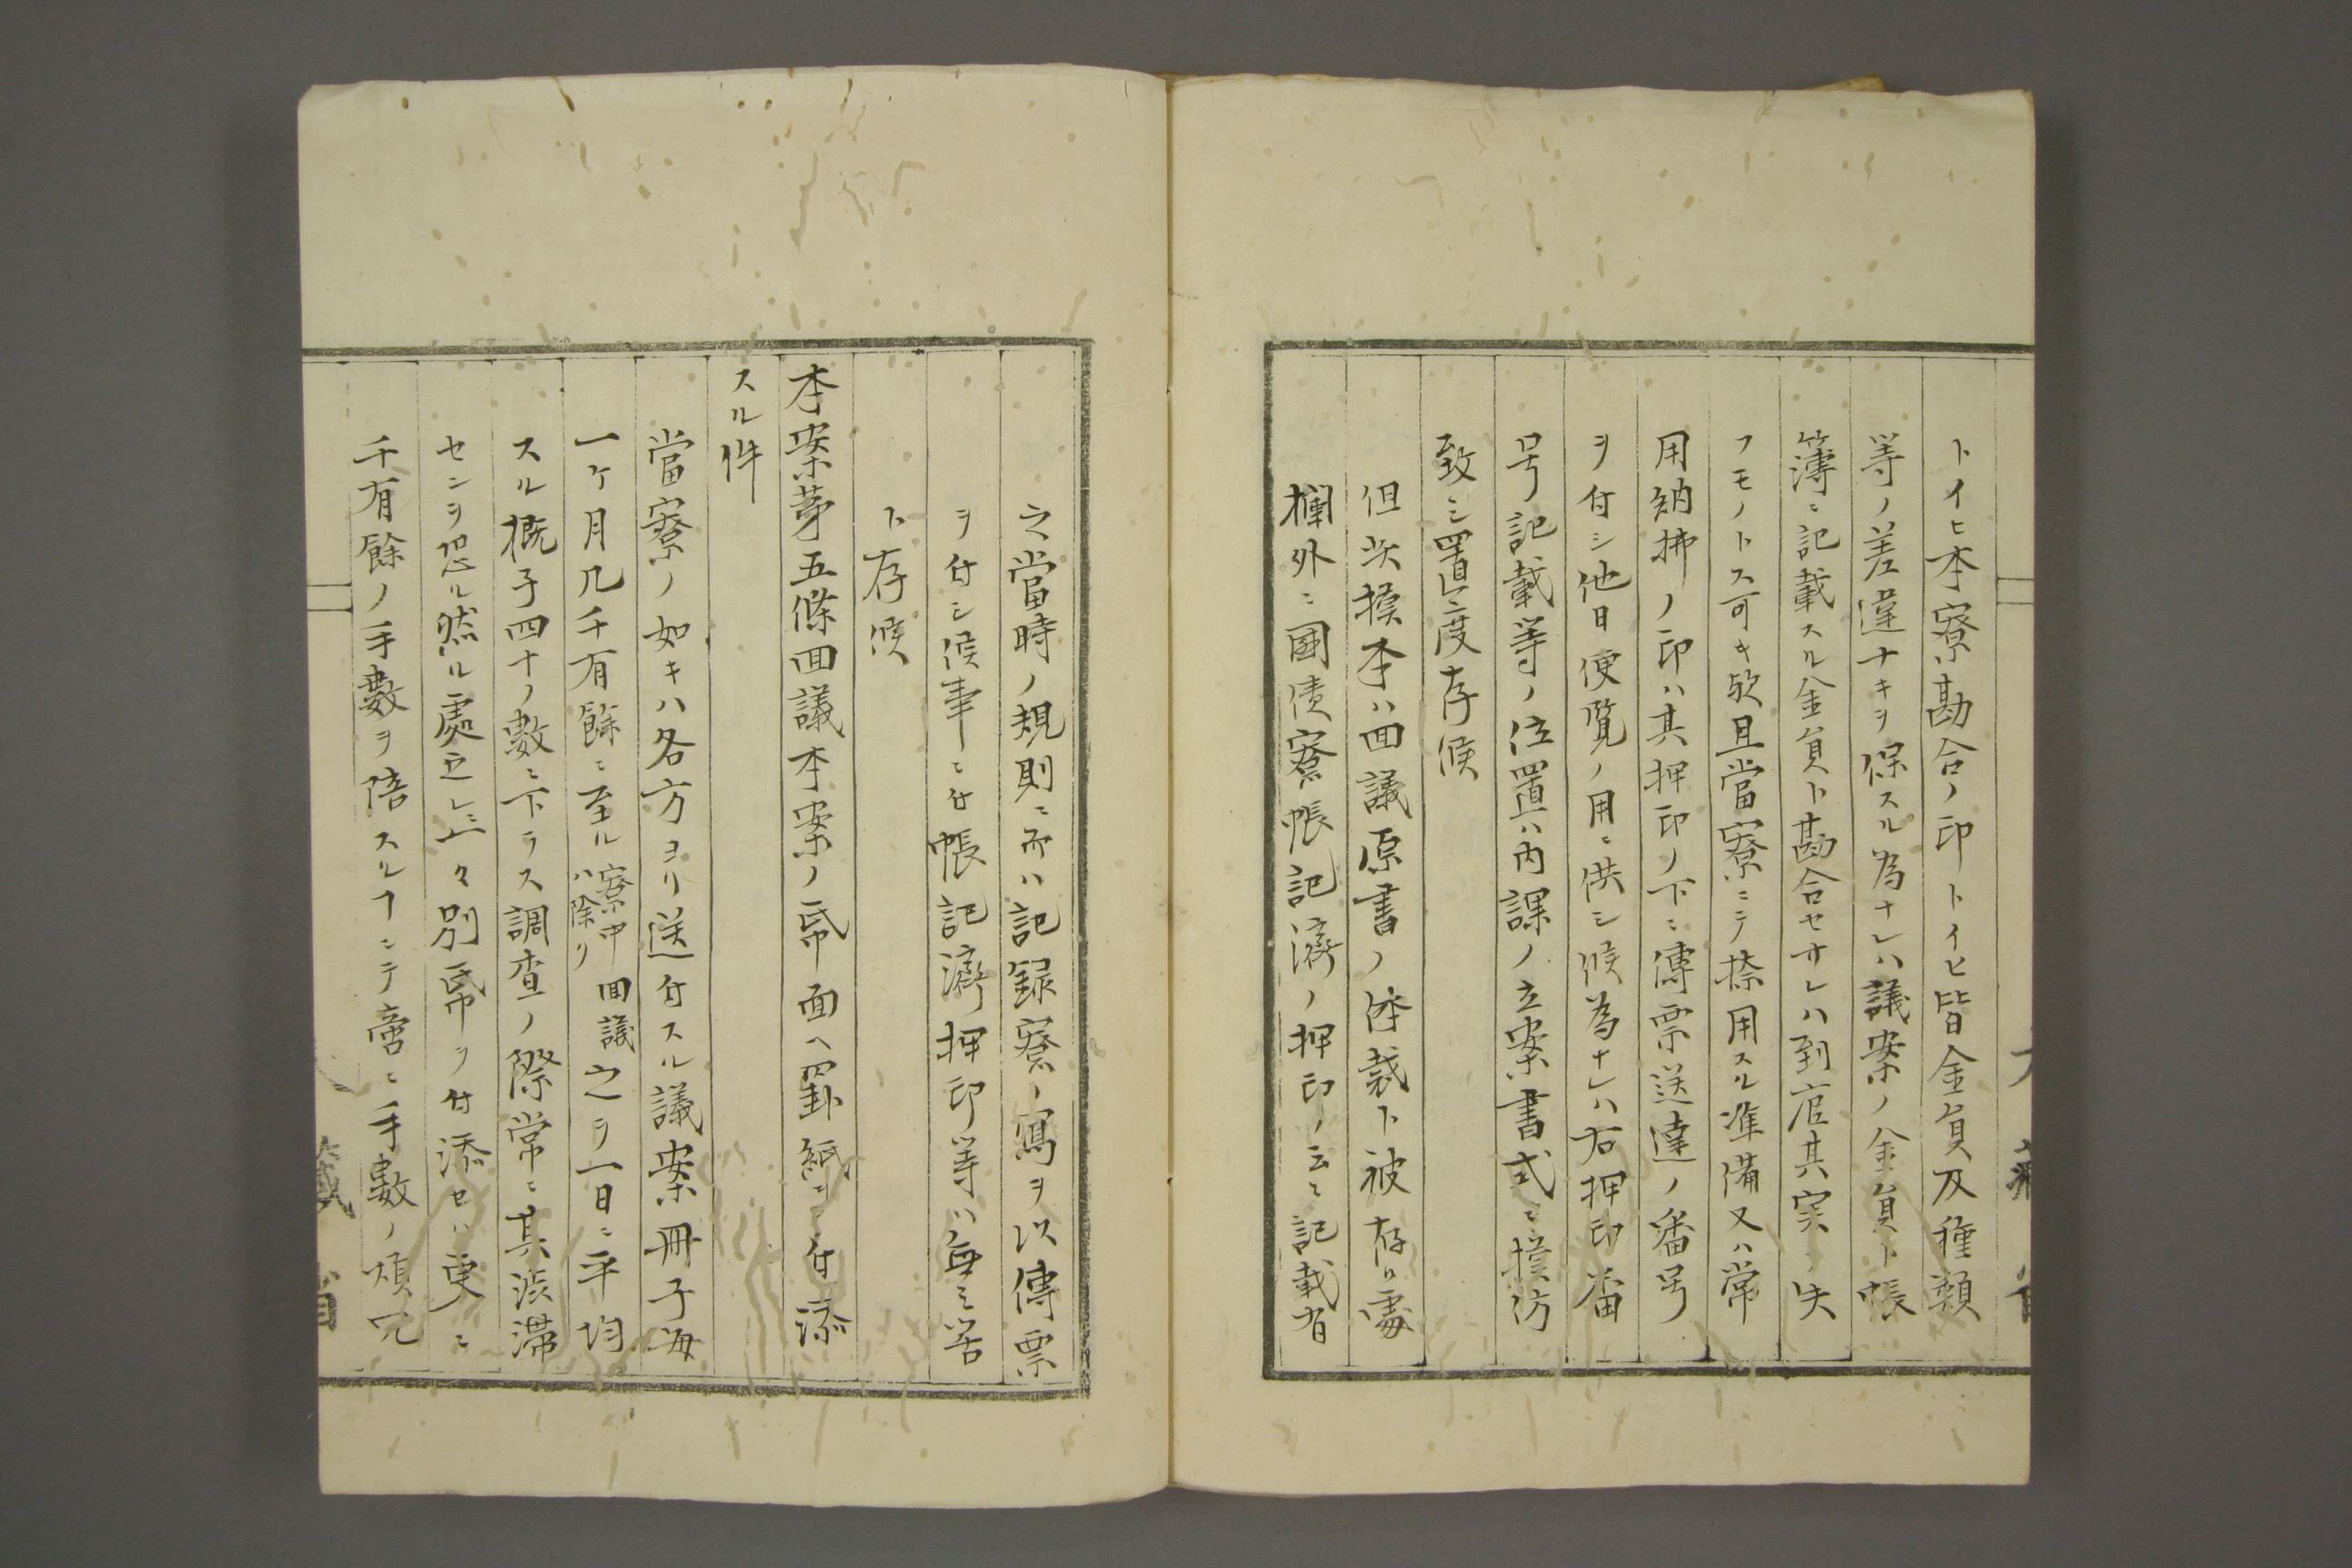 トイヒ本寮勘合ノ印トイヒ皆金員及種類
等ノ差違ナキヲ保スル為ナレハ議案ノ金員ト帳
簿ニ記載スル金員ト勘合セサレハ到底其実ヲ失
フモノトス可キ欤且當寮ニテ捺用スル准備又ハ常
用納拂ノ印ハ其押印ノ下ニ傳票送達ノ番号
ヲ付シ他日便覧ノ用ニ供シ候為ナレハ右押印番
号記載等ノ位置ハ内課ノ立案書式ニ摸仿
致シ置度存候
但此摸本ハ回議原書ノ体裁ト被存候處
欄外ニ國債寮帳記濟ノ押印ノ云々記載有
之當時ノ規則ニ而ハ記録寮ノ寫ヲ以傳票
ヲ付シ候事ニ付帳記濟押印等ハ無之筈
ト存候
本案第五條回議本案ノ帋面ヘ罫紙ニ付添
スル件
當寮ノ如キハ各方ヨリ送付スル議案冊子毎
一ケ月凡千有餘ニ至ル寮中回議ハ除ク之ヲ一日ニ平均
スル概子四十ノ數ニ下ラス調査ノ際常ニ其渋滞
センヲ恐ル然ル處之レニ一々別帋ヲ付添セハ更ニ
千有餘ノ手數ヲ陪スルヿニテ啻ニ手數ノ煩冗
藏省